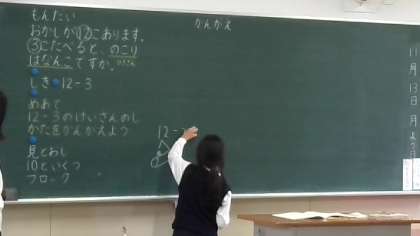 もんだい
おかしが⑫こあります。
③こたべると、のこり
はなんこですか。
しき 12-3
めあて
12-3のけいさんのし
かたをかんがえよう
見とおし
10といくつ
ブロック
かんがえ
12-
月
13
日